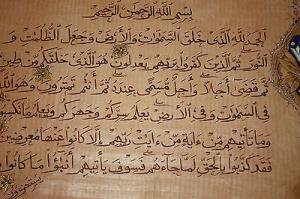 بسم الله الرحمن الرحيم
الحمد لله الذي خلق السموت والأرض وجعل الظلمت و
النور ثم الذين كفروا بربهم يعدلون هو الذي خلقكم من طين
ثم قضى أجلا وأجل مسمى عنده ثم أنتم تمترون وهو الله
في السموت وفي الأرض يعلم سركم وجهركم ويعلم ما تكسبون
وما تأتيهم من ءاية من ءايت ربهم إلا كانوا عنها معرضين
فقد كذبوا بالحق لما جاءهم فسوف يأتيهم أنبؤا ما كانوا